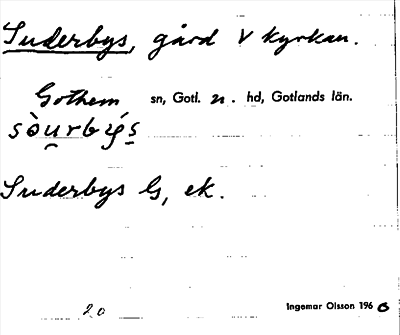 Suderbys, gård V kyrkan.
Gothem sn, Gotl. n. hd, Gotlands län.
sò̯urbýs̠
Suderbys G, ek.
20
Ingemar Olsson 1960